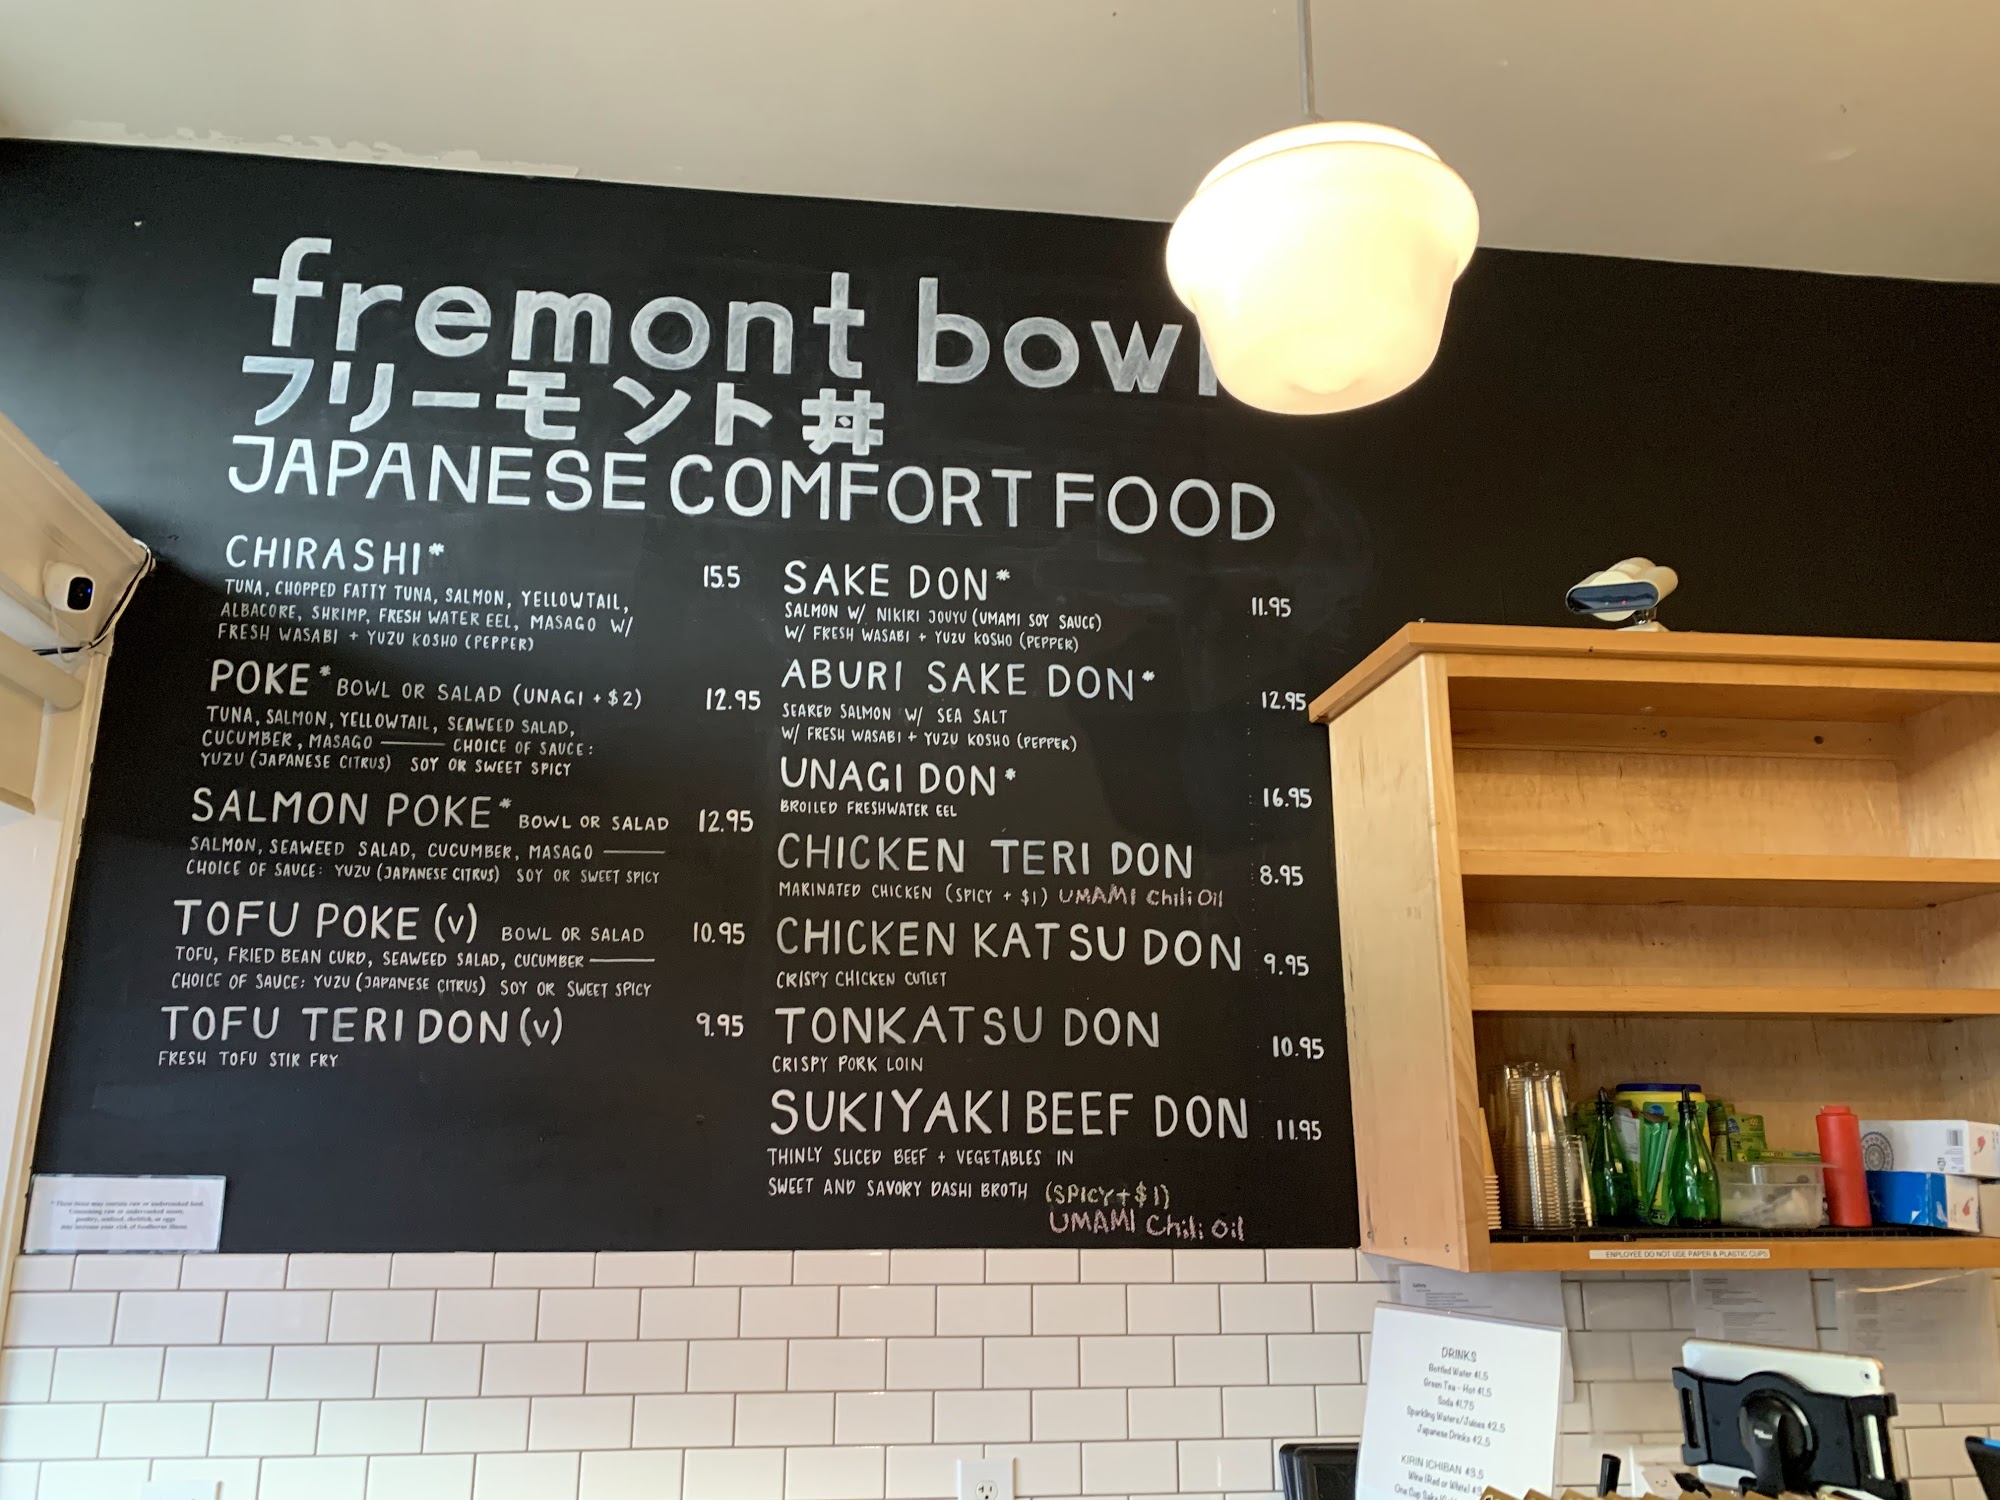 fremont bowl
フリーモント丼
JAPANESE COMFORT FOOD
CHIRASHI* 15.5
TUNA, CHOPPED FATTY TUNA, SALMON, YELLOWTAIL,
ALBACORE, SHRIMP, FRESH WATER EEL, MASAGO W/
FRESH WASABI + YUZU KOSHO (PEPPER)
POKE* BOWL OR SALAD (UNAGI + $2) 12.95
TUNA, SALMON, YELLOWTAIL, SEAWEED SALAD,
CUCUMBER, MASAGO —— CHOICE OF SAUCE:
YUZU (JAPANESE CITRUS) SOY OR SWEET SPICY
SALMON POKE* BOWL OR SALAD 12.95
SALMON, SEAWEED SALAD, CUCUMBER, MASAGO ——
CHOICE OF SAUCE: YUZU (JAPANESE CITRUS) SOY OR SWEET SPICY
TOFU POKE (V) BOWL OR SALAD 10.95
TOFU, FRIED BEAN CURD, SEAWEED SALAD, CUCUMBER ——
CHOICE OF SAUCE: YUZU (JAPANESE CITRUS) SOY OR SWEET SPICY
TOFU TERI DON (V) 9.95
FRESH TOFU STIR FRY
SAKE DON* 11.95
SALMON W/ NIKIRI JOUYU (UMAMI SOY SAUCE)
W/ FRESH WASABI + YUZU KOSHO (PEPPER)
ABURI SAKE DON* 12.95
SEARED SALMON W/ SEA SALT
W/ FRESH WASABI + YUZU KOSHO (PEPPER)
UNAGI DON* 16.95
BROILED FRESHWATER EEL
CHICKEN TERI DON 8.95
MARINATED CHICKEN (SPICY + $1) UMAMI Chili Oil
CHICKEN KATSU DON 9.95
CRISPY CHICKEN CUTLET
TONKATSU DON 10.95
CRISPY PORK LOIN
SUKIYAKI BEEF DON 11.95
THINLY SLICED BEEF + VEGETABLES IN
SWEET AND SAVORY DASHI BROTH (SPICY + $1)
UMAMI Chili Oil
* These items may contain raw or undercooked food.
Consuming raw or undercooked meats,
poultry, seafood, shellfish, or eggs
may increase your risk of foodborne illness.
EMPLOYEE DO NOT USE PAPER & PLASTIC CUPS
DRINKS
Bottled Water $1.5
Green Tea - Hot $1.5
Soda $1.75
Sparkling Waters/Juices $2.5
Japanese Drinks $2.5
KIRIN ICHIBAN $3.5
Wine (Red or White)
One Cup Sake